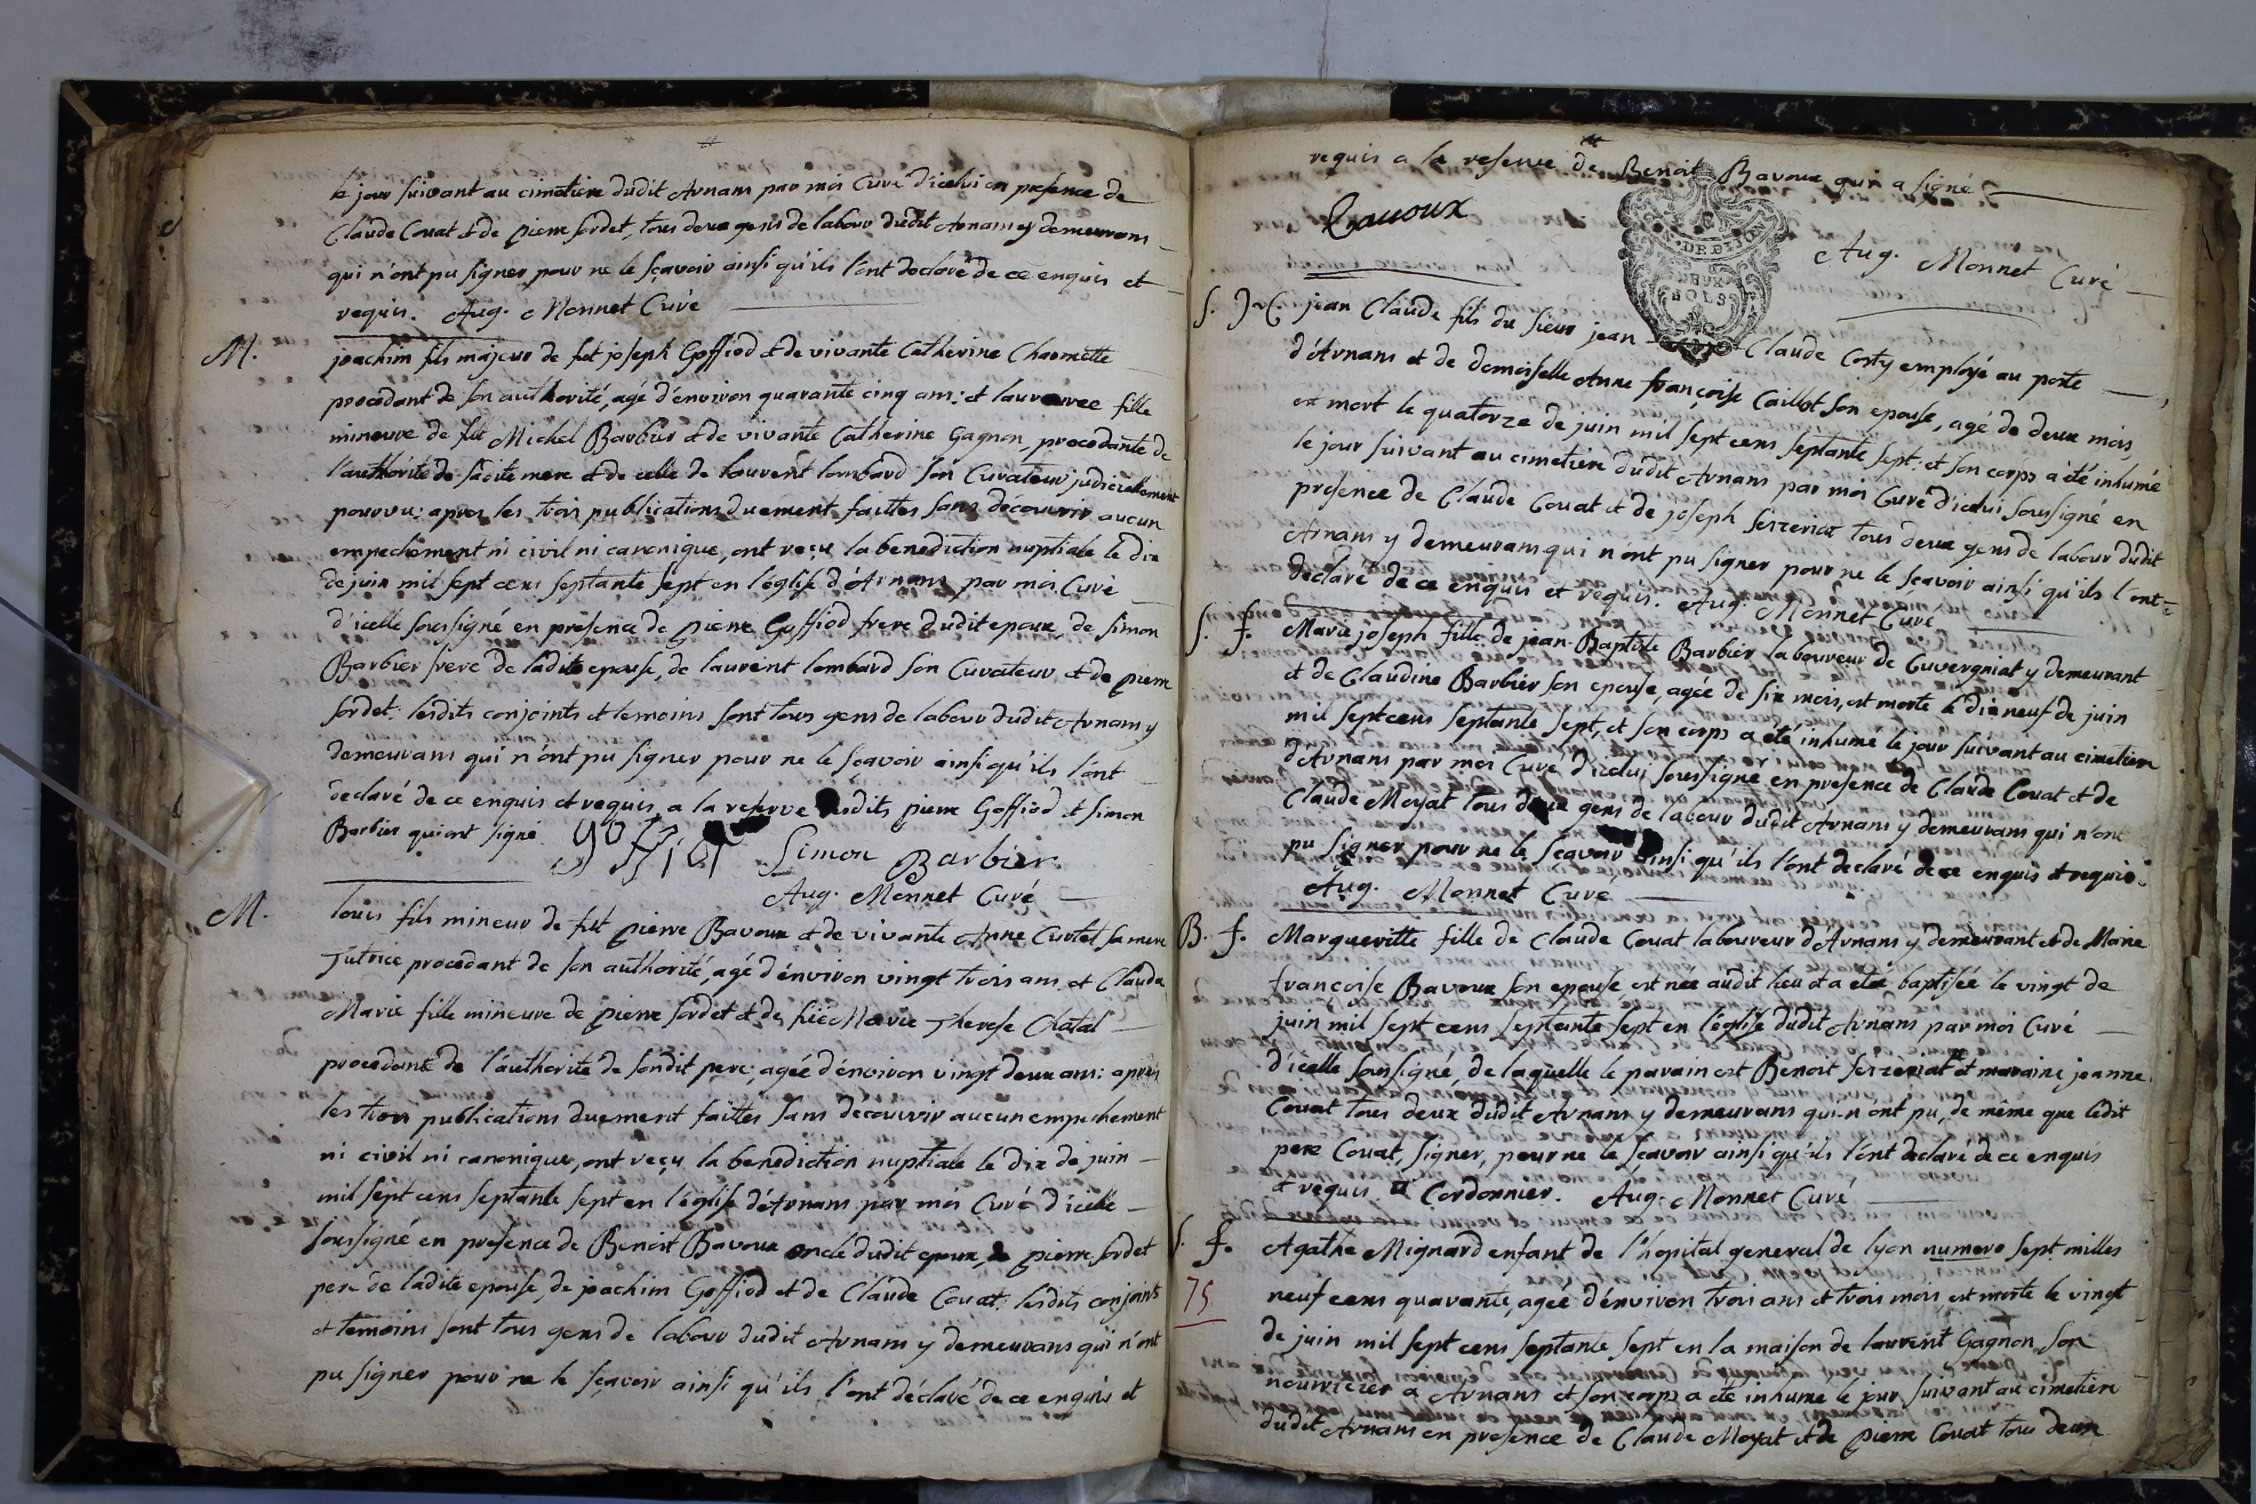 le jour suivant au cimetiere dudit Arnans par moi Curé d'icelui en presence de
Claude Couat et de pierre sordet, tous deux gens de labour dudit Arnans y demeurans
qui n'ont pu signer pour ne le sçavoir ainsi qu'ils l'ont declaré de ce enquis et
requis. Aug. Monnet Curé
M.
joachim fils majeur de fut joseph Goffiod et de vivante Catherine Charmette
procedant de son authorité, agé d'environ quarante cinq ans: et laurence fille
mineure de fut Michel Barbier et de vivante Catherine Gagnon, procedante de
l'authorité de sadite mere et de celle de laurent lombard son Curateur judiciellement
pourvu: apres les trois publications duement faittes sans découvrir aucun
empechement ni civil ni canonique, ont reçu la benediction nuptiale le dix
de juin mil sept cens septante sept en l'église d'Arnans par moi Curé
d'icelle soussigné en presence de pierre Goffiod frere dudit epoux, de simon
Barbier frere de ladite epouse, de laurent lombard son Curateur et de pierre
sordet: lesdits conjoints et temoins sont tous gens de labour dudit Arnans y
demeurans qui n'ont pu signer pour ne le sçavoir ainsi qu'ils l'ont
declaré de ce enquis et requis, a la reserve desdits pierre Goffiod et simon
Barbier qui ont signé goffiot Simon Barbier
Aug. Monnet Curé
M.
louis fils mineur de fut pierre Bavoux et de vivante Anne Curtet sa mere
Tutrice procedant de son authorité, agé d'environ vingt trois ans, et Claude
Marie fille mineure de pierre sordet et de füe Marie Therese Chatal
procedante de l'authorité de sondit pere; agée d'environ vingt deux ans: aprés
les trois publications duement faittes sans découvrir aucun empechement
ni civil ni canonique, ont reçu la benediction nuptiale le dix de juin
mil sept cens septante sept en l'église d'Arnans par moi Curé d'icelle
soussigné en presence de Benoit Bavoux oncle dudit epoux, de pierre sordet
pere de ladite epouse, de joachim Goffiod et de Claude Couat: lesdits conjoints
et temoins sont tous gens de labour dudit Arnans y demeurans qui n'ont
pu signer pour ne le sçavoir ainsi qu'ils l'ont déclaré de ce enquis et
requis a la reserve de Benoit Bavoux qui a signé
Bauoux
G. DE DIJON
DEUX
SOLS
Aug. Monnet Curé
S. J.C.
jean Claude fils du sieur jean Claude Corty employé au poste
d'Arnans et de demoiselle Anne françoise Caillot son epouse, agé de deux mois,
est mort le quatorze de juin mil sept cens septante sept: et son corps a été inhumé
le jour suivant au cimetiere dudit Arnans par moi Curé d'icelui soussigné en
presence de Claude Couat et de joseph serzeriat tous deux gens de labour dudit
Arnans y demeurans qui n'ont pu signer pour ne le sçavoir ainsi qu'ils l'ont
declaré de ce enquis et requis. Aug. Monnet Curé
S. f.
Marie joseph fille de jean-Baptiste Barbier laboureur de Cuvergniat y demeurant
et de Claudine Barbier son epouse, agée de six mois, est morte le dix neuf de juin
mil sept cens septante sept, et son corps a été inhumé le jour suivant au cimetiere
d'Arnans par moi Curé d'icelui soussigné en presence de Claude Couat et de
Claude Moyat tous deux gens de labour dudit Arnans y demeurans qui n'ont
pu signer pour ne le sçavoir ainsi qu'ils l'ont declaré de ce enquis et requis.
Aug. Monnet Curé
B. f.
Margueritte fille de Claude Couat laboureur d'Arnans y demeurant et de Marie
françoise Bavoux son epouse est née audit lieu et a été baptisée le vingt de
juin mil sept cens septante sept en l'église dudit Arnans par moi Curé
d'icelle soussigné, de laquelle le parain est Benoit serzeriat # et maraine jeanne
Couat tous deux dudit Arnans y demeurans qui n'ont pu, de même que ledit
pere Couat, signer, pour ne le sçavoir ainsi qu'ils l'ont declaré de ce enquis
et requis. # Cordonnier. Aug. Monnet Curé
S. f.
75
Agathe Mignard enfant de l'hopital general de lyon numero sept milles
neuf cens quarante, agée d'environ trois ans et trois mois, est morte le vingt
de juin mil sept cens septante sept en la maison de laurent Gagnon son
nourricier a Arnans et son corps a été inhumé le jour suivant au cimetiere
dudit Arnans en presence de Claude Moyat et de pierre Couat tous deux